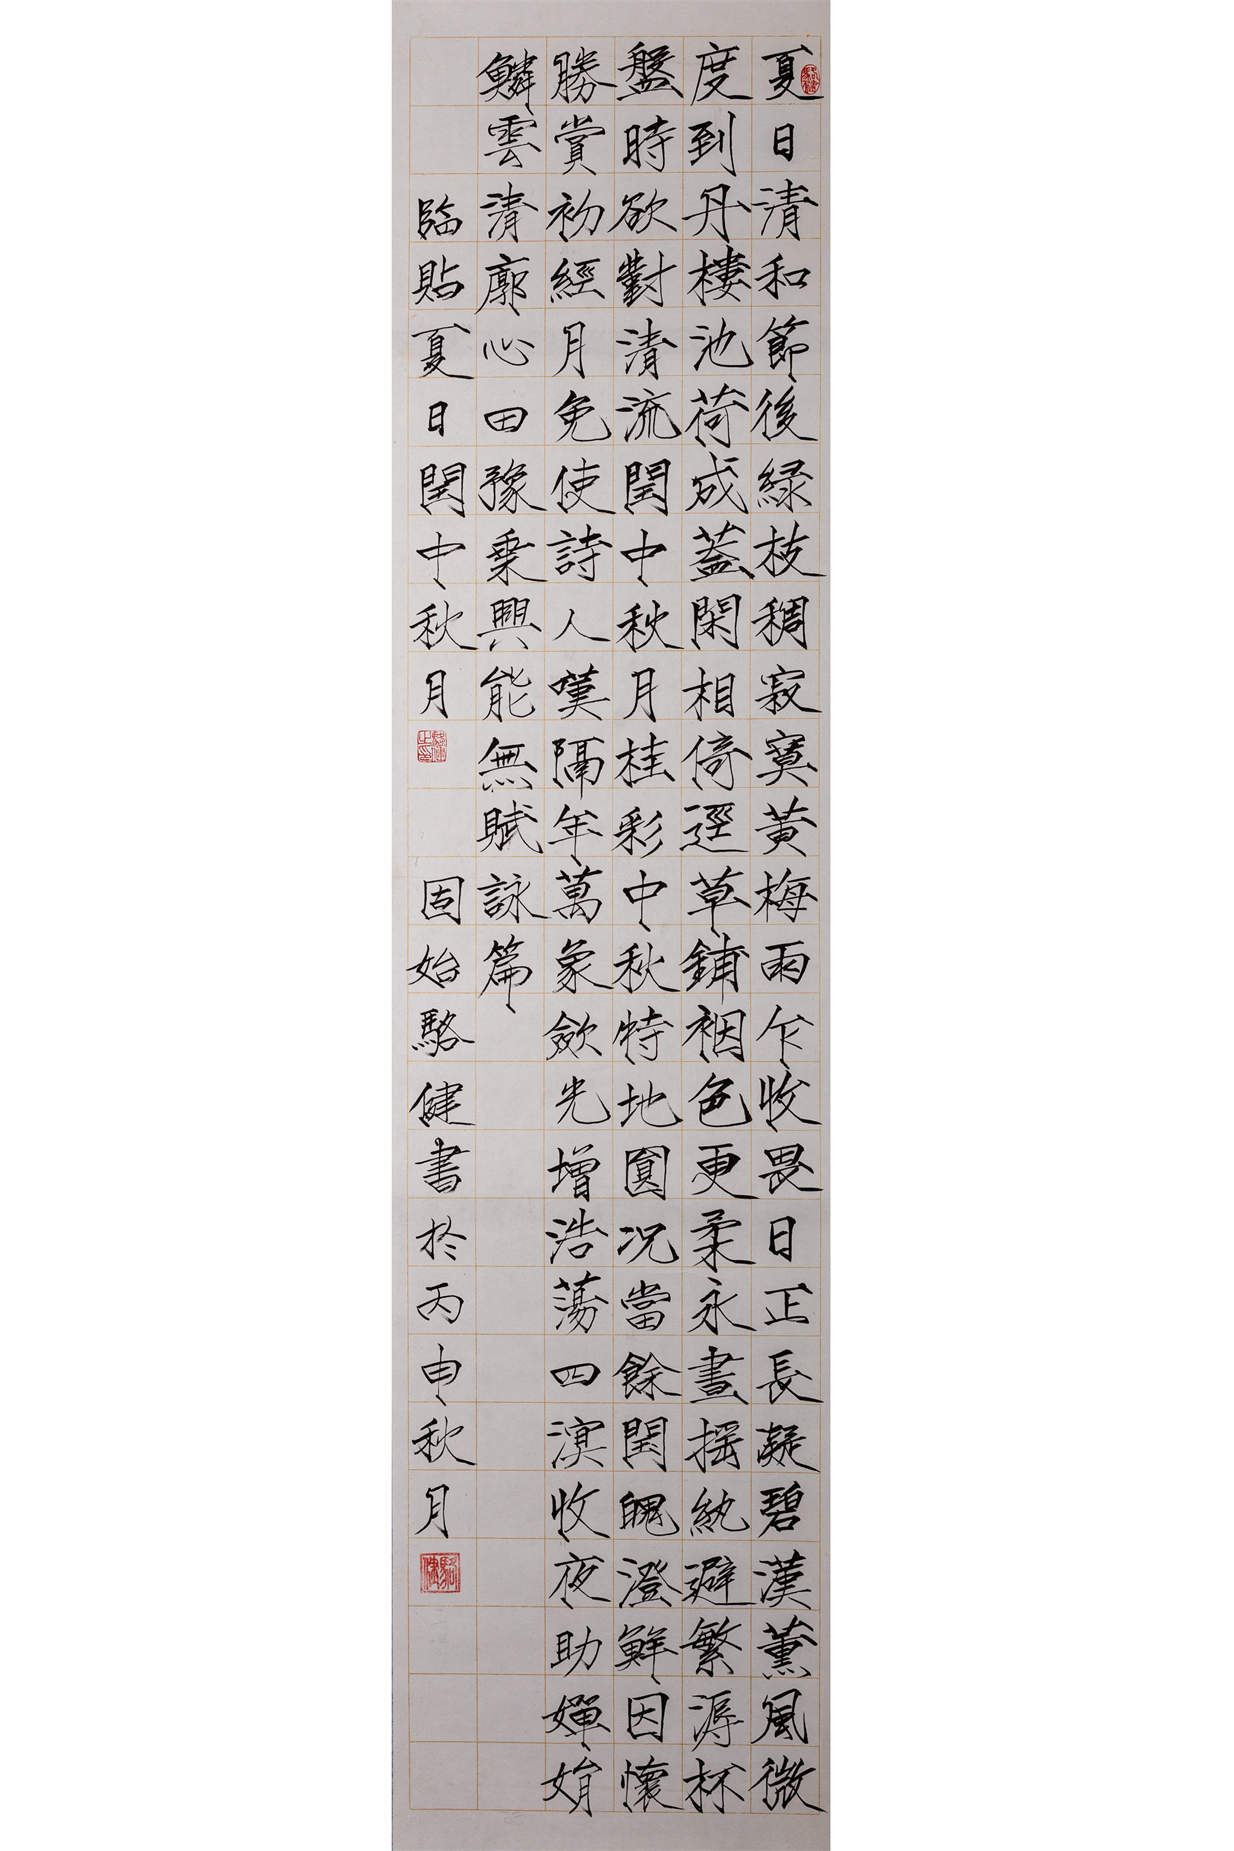 夏日清和節後緑枝稠寂寞黄梅雨乍收畏日正長凝碧漢薰風微
度到丹樓池荷成蓋閑相倚逕草鋪裀色更柔永晝揺紈避繁溽杯
盤時欲對清流閏中秋月桂彩中秋特地圓况當餘閏魄澄鮮因懷
勝賞初經月免使詩人嘆隔年萬象斂光增浩蕩四溟收夜助嬋娟
鱗雲清廓心田豫乗興能無賦詠篇
臨貼夏日閏中秋月
固始駱健書於丙申秋月